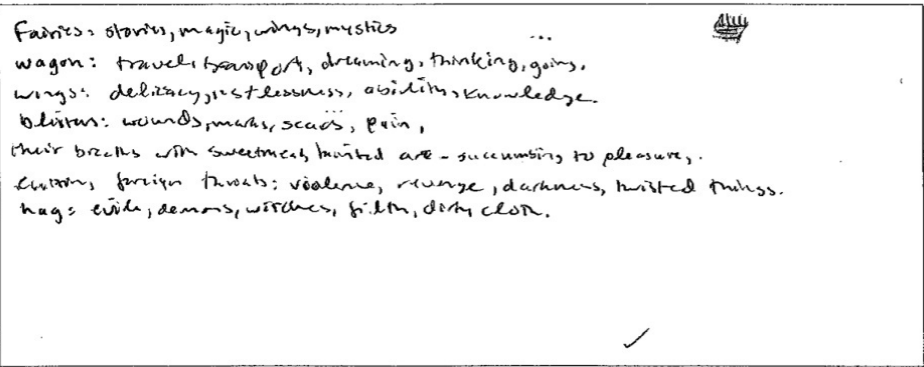 Fairies: stories, magic, wings, mystics
...
wagon: travel, transport, dreaming, thinking, going.
wings: delicacy, restlessness, ability, knowledge.
blisters: wounds, marks, scabs, pain,
their breaths with sweetmeats tainted are - succumbing to pleasure,.
cutting foreign throats: violence, revenge, darkness, twisted things.
hag: evil, demons, witches, filth, dirty cloth.